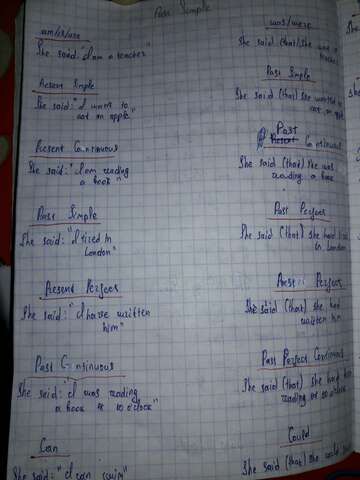 Past Simple
am/is/are
She said: "I am a teacher"
Present Simple
She said: "I want to
eat an apple"
Present Continuous
She said: "I am reading
a book"
Past Simple
She said: "I lived in
London"
Present Perfect
She said: "I have written
him"
Past Continuous
She said: "I was reading
a book at 10 o'clock"
Can
She said: "I can swim"
was/were
She said (that) she was a
teacher
Past Simple
She said (that) she wanted to
eat an
Past
Continuous
She said (that) she was
reading a book
Past Perfect
She said (that) she had
in London
Past Perfect
She said (that) she had
written him
Past Perfect Continuous
She said (that) she had been
reading at 10 o'clock
Could
She said (that) she could